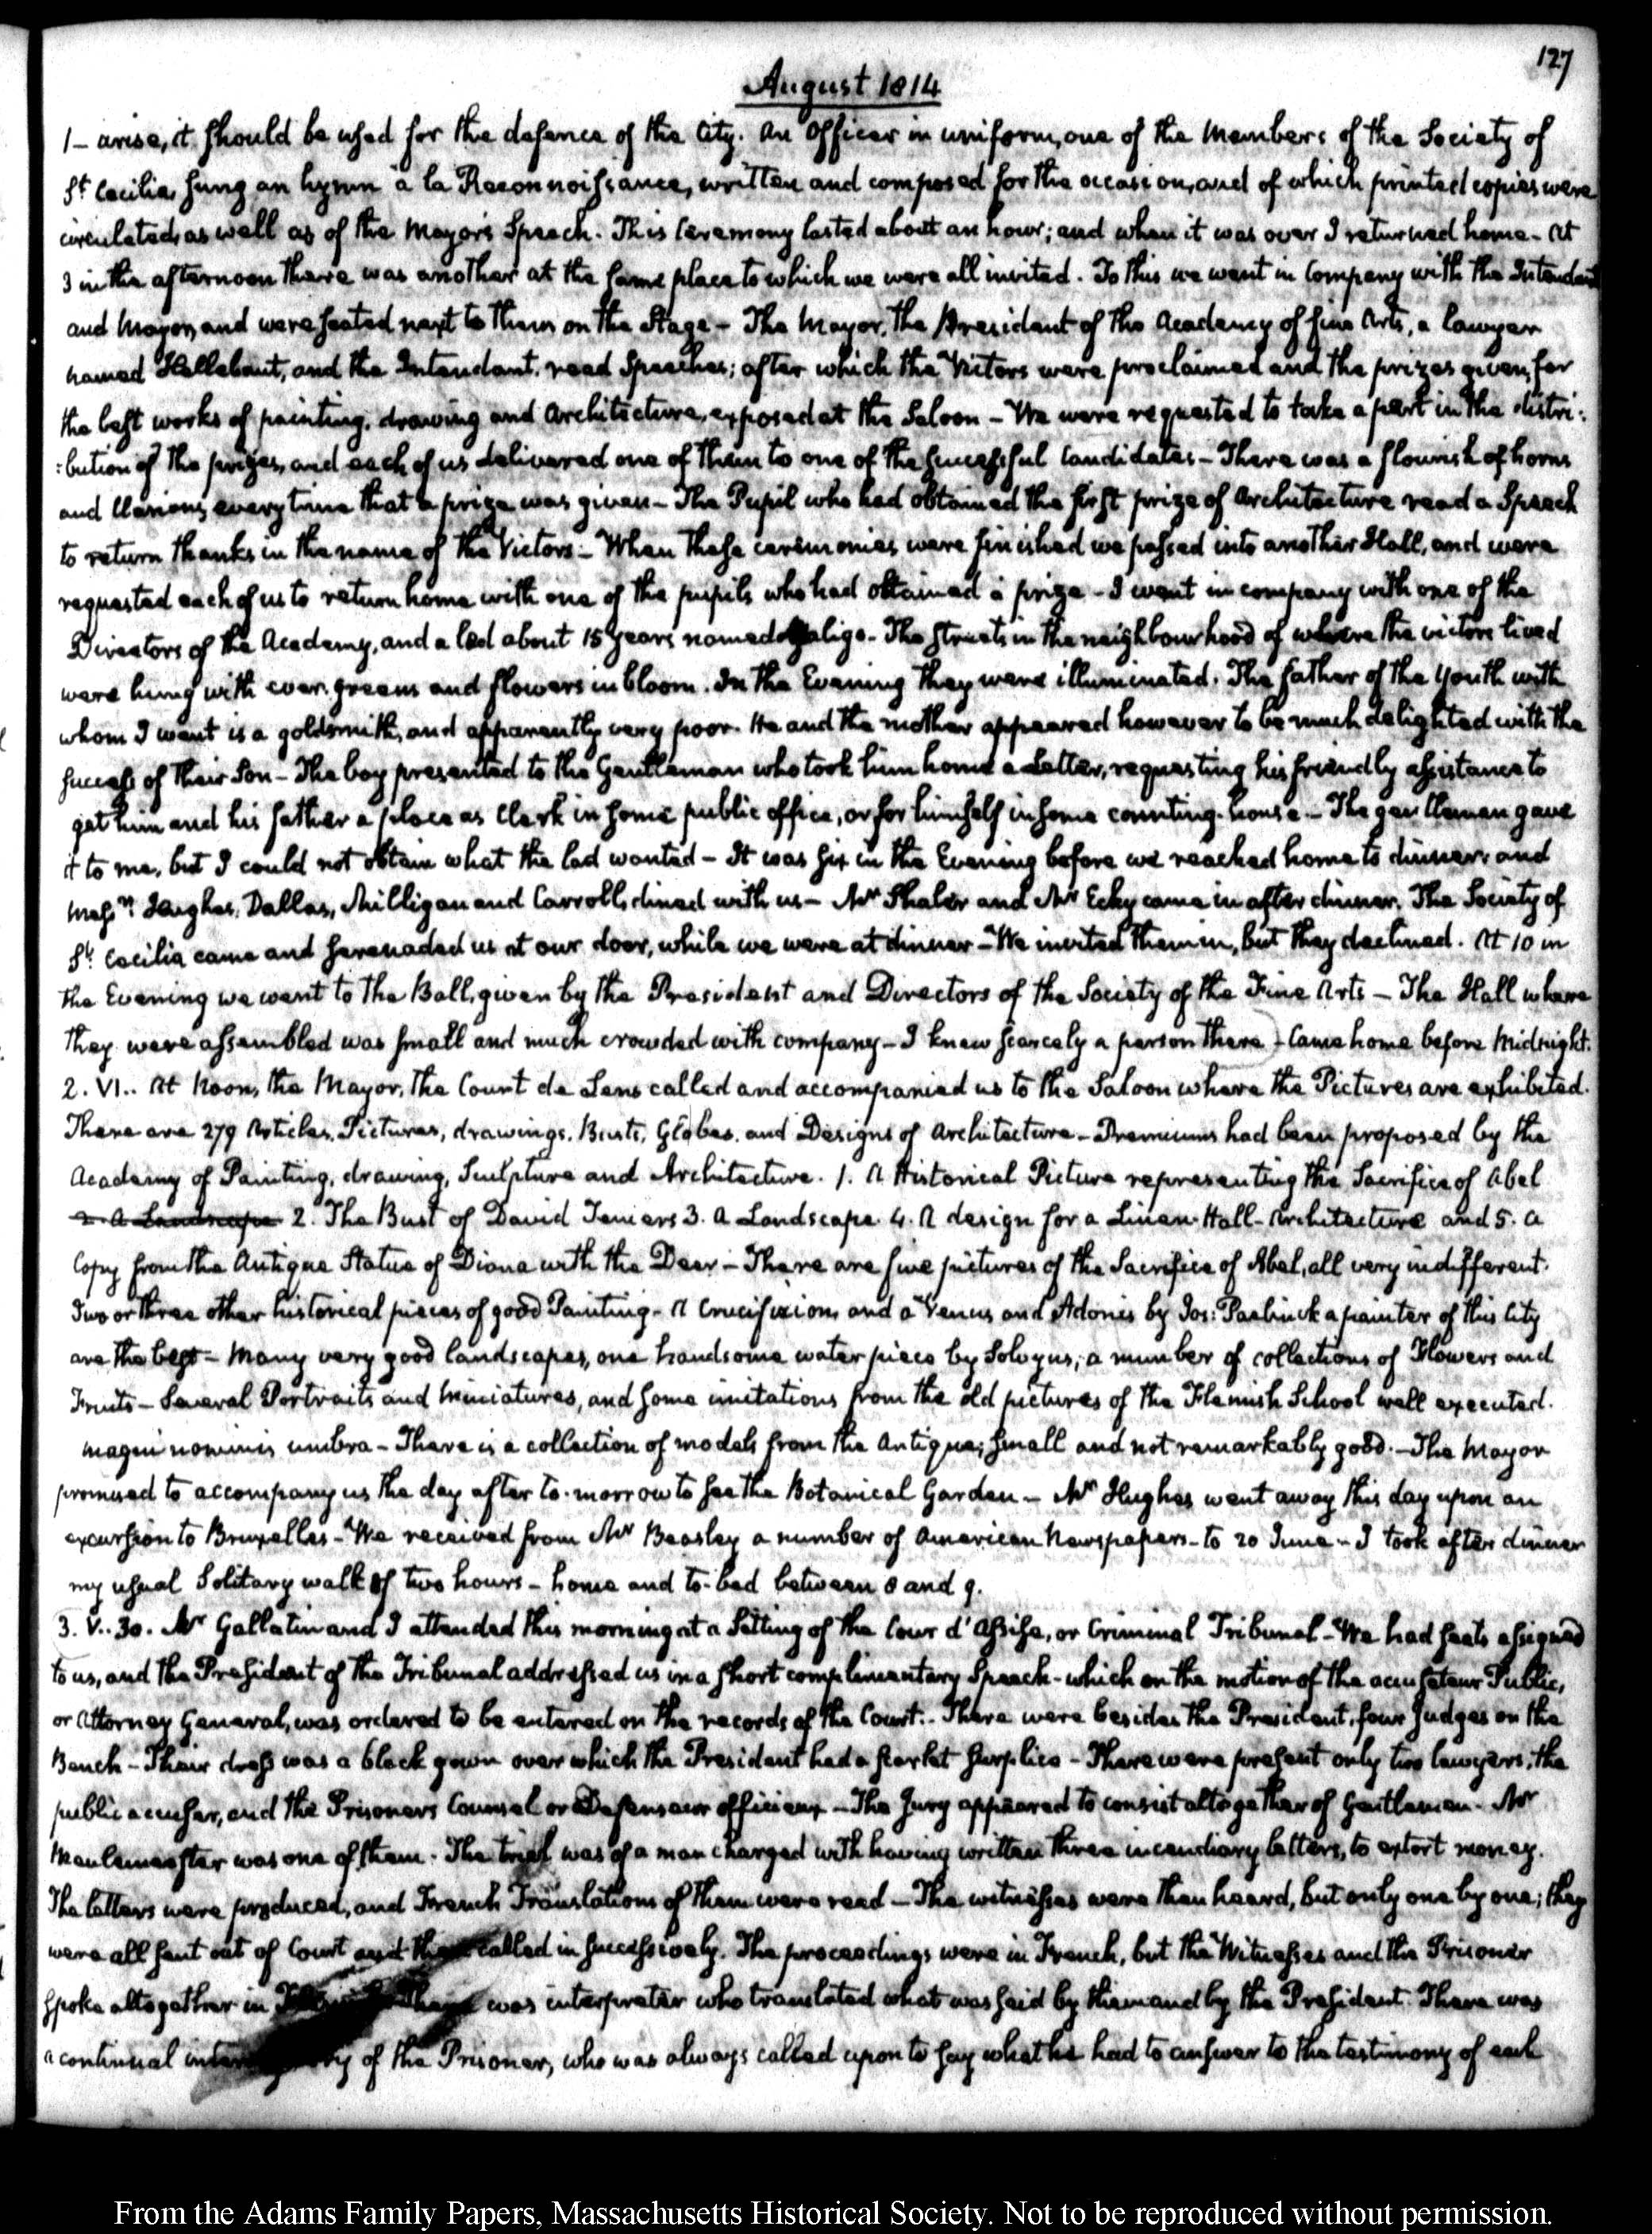 127
August 1814
1 – arise, it should be used for the defence of the City. An Officer in uniform, one of the Members of the Society of
St. Cecilia, sung an hymn à la Reconnoissance, written and composed for the occasion, and of which printed copies were
circulated, as well as of the Mayor's Speech. This Ceremony lasted about an hour; and when it was over I returned home – At
3 in the afternoon there was another at the same place to which we were all invited. To this we went in Company with the Intendant
and Mayor, and were seated next to them on the Stage – The Mayor, the President of the Academy of fine Arts, a lawyer
named Hellebaut, and the Intendant, read Speeches; after which the Victors were proclaimed and the prizes given, for
the best works of painting, drawing and Architecture, exposed at the Saloon – We were requested to take a part in the distri:
:bution of the prizes, and each of us delivered one of them to one of the successful Candidates – There was a flourish of horns
and Clarions, every time that a prize was given – The Pupil who had obtained the first prize of Architecture read a Speech
to return thanks in the name of the Victors – When these ceremonies were finished we passed into another Hall, and were
requested each of us to return home with one of the pupils who had obtained a prize – I went in company with one of the
Directors of the Academy, and a lad about 15 years named – The streets in the neighbourhood of where the victors lived
were hung with ever-greens and flowers in bloom. In the Evening they were illuminated. The father of the Youth with
whom I went is a goldsmith, and apparently very poor. He and the mother appeared however to be much delighted with the
success of their Son – The boy presented to the Gentleman who took him home a Letter, requesting his friendly assistance to
get him and his father a place as Clerk in some public office, or for himself in some counting-house – The gentleman gave
it to me, but I could not obtain what the lad wanted – It was six in the Evening before we reached home to dinner, and
Messrs. Hughes, Dallas, Milligan and Carroll, dined with us – Mr Shaler and Mr Ecky came in after dinner. The Society of
St. Cecilia came and serenaded us at our door, while we were at dinner – We invited them in, but they declined. At 10 in
the Evening we went to the Ball, given by the President and Directors of the Society of the Fine Arts – The Hall where
they were assembled was small and much crowded with company – I knew scarcely a person there – Came home before Midnight.
2. VI.. At Noon, the Mayor, the Count de Lens called and accompanied us to the Saloon where the Pictures are exhibited.
There are 279 Articles, Pictures, drawings, Busts, Globes, and Designs of Architecture – Premiums had been proposed by the
Academy of Painting, drawing, Sculpture and Architecture. 1. A Historical Picture representing the Sacrifice of Abel
2. A Landscape 2. The Bust of David Teniers 3. A Landscape. 4. A design for a Linen-Hall – Architecture and 5. a
Copy from the Antique Statue of Diana with the Deer – There are five pictures of the Sacrifice of Abel, all very indifferent.
Two or three other historical pieces of good Painting – A Crucifixion, and a Venus and Adonis by Jos: Paelinck a painter of this City
are the best – Many very good landscapes, one handsome water piece by Solvyns; a number of collections of Flowers and
Fruits – Several Portraits and Miniatures, and some imitations from the old pictures of the Flemish School well executed.
magni nominis umbra – There is a collection of models from the Antique; small and not remarkably good. – The Mayor
promised to accompany us the day after to-morrow to see the Botanical Garden – Mr Hughes went away this day upon an
excursion to Bruxelles – We received from Mr Beasley a number of American Newspapers – to 20 June – I took after dinner
my usual Solitary walk of two hours – home and to-bed between 8 and 9.
3. V..30. Mr Gallatin and I attended this morning at a Sitting of the Cour d'Assise, or Criminal Tribunal – We had seats assigned
to us, and the President of the Tribunal addressed us in a short complimentary Speech – which on the motion of the accusateur Public,
or Attorney General, was ordered to be entered on the records of the Court. – There were besides the President, four Judges on the
Bench – Their dress was a black gown over which the President had a scarlet surplice – There were present only two lawyers, the
public accuser, and the Prisoners Counsel or Defenseur officieux – The Jury appeared to consist altogether of Gentlemen – Mr
Meulemeester was one of them. The trial was of a man charged with having written three incendiary letters, to extort money.
The letters were produced, and French Translations of them were read – The witnesses were then heard, but only one by one; they
were all sent out of Court and then called in successively. The proceedings were in French, but the Witnesses and the Prisoner
spoke altogether in was interpreter who translated what was said by them and by the President. There was
a continual of the Prisoner, who was always called upon to say what he had to answer to the testimony of each
From the Adams Family Papers, Massachusetts Historical Society. Not to be reproduced without permission.